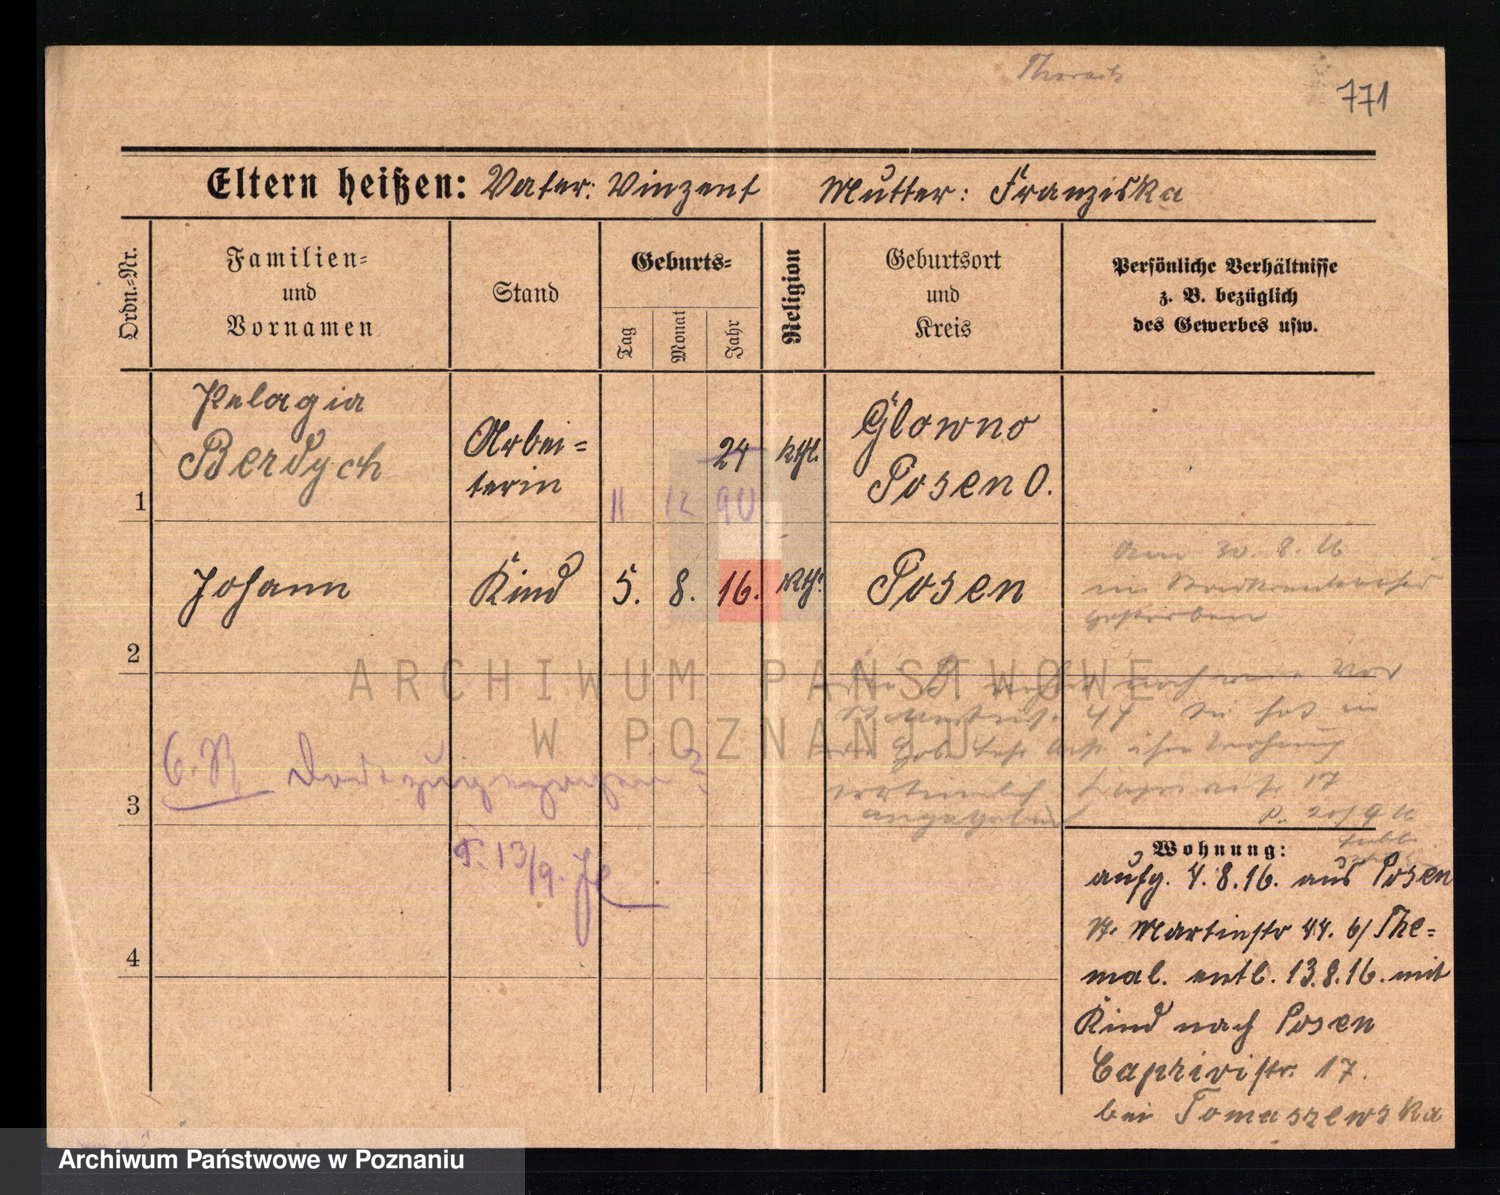 771
Eltern heißen: Vater: Vinzent Mutter: Franziska
Ordn.-Nr.
Familien-
und
Vornamen
Stand
Geburts-
Tag
Monat
Jahr
Religion
Geburtsort
und
Kreis
Persönliche Verhältnisse
z. B. bezüglich
des Gewerbes usw.
1
Pelagia
Berdych
Arbei-
terin
24
11 12 90
kth.
Glowno
Posen O.
2
Johann
Kind
5. 8. 16.
kth.
Posen
30. 8. 16
im
gestorben
noch
47 Sie hat in
ihre Wohnung
17
angegeben
3
13/9.
4
Wohnung:
aufg. 4. 8. 16. aus Posen
St. Martinstr 44. b/ The-
mal. entl. 13. 8. 16. mit
Kind nach Posen
Caprivistr. 17.
bei Tomaszewska
ARCHIWUM PAŃSTWOWE
W POZNANIU
Archiwum Państwowe w Poznaniu